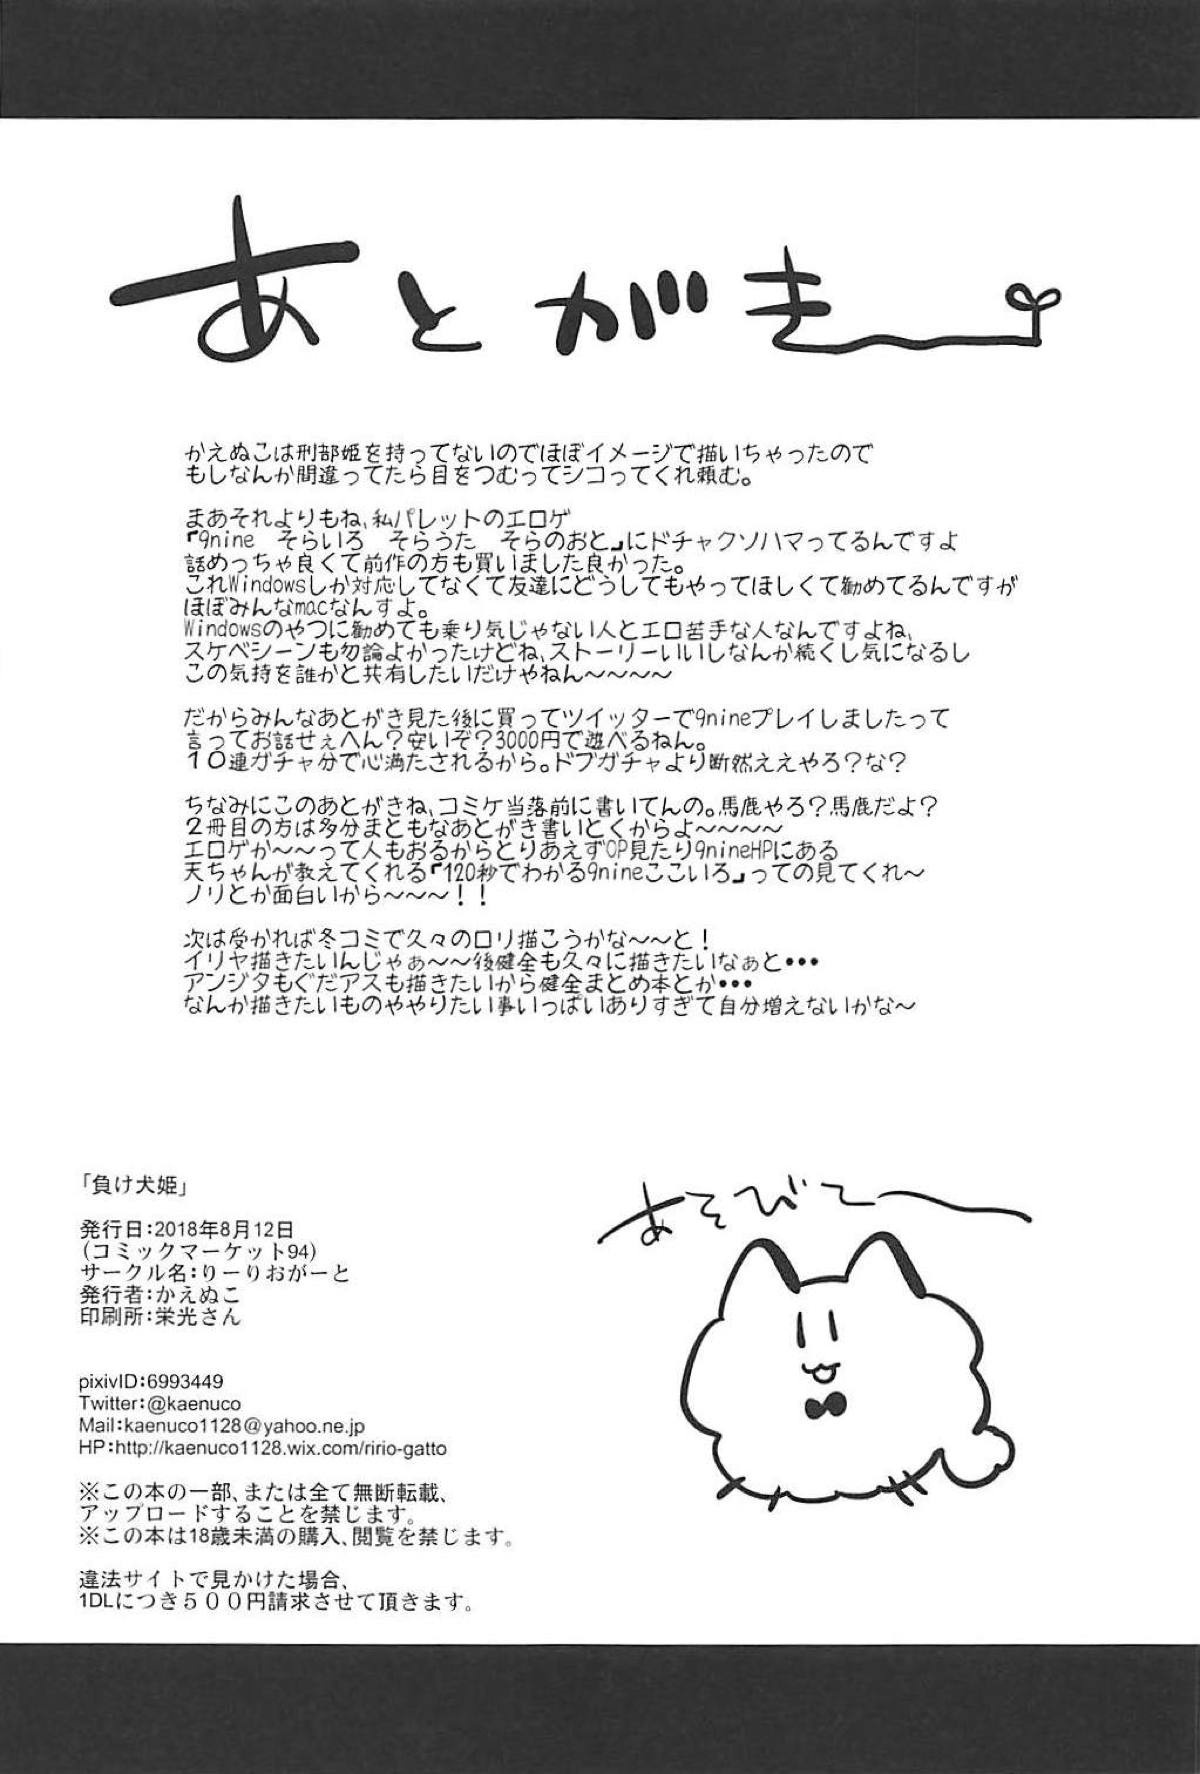 あとがき
かえぬこは刑部姫を持ってないのでほぼイメージで描いちゃったので
もしなんか間違ってたら目をつむってシコってくれ頼む。
まあそれよりもね、私パレットのエロゲ
『9nine　そらいろ　そらうた　そらのおと』にドチャクソハマってるんですよ
話めっちゃ良くて前作の方も買いました良かった。
これWindowsしか対応してなくて友達にどうしてもやってほしくて勧めてるんですが
ほぼみんなmacなんすよ。
Windowsのやつに勧めても乗り気じゃない人とエロ苦手な人なんですよね、
スケベシーンも勿論よかったけどね、ストーリーいいしなんか続くし気になるし
この気持を誰かと共有したいだけやねん～～～～
だからみんなあとがき見た後に買ってツイッターで9nineプレイしましたって
言ってお話せぇへん？安いぞ？3000円で遊べるねん。
１０連ガチャ分で心満たされるから。ドブガチャより断然ええやろ？な？
ちなみにこのあとがきね、コミケ当落前に書いてんの。馬鹿やろ？馬鹿だよ？
２冊目の方は多分まともなあとがき書いとくからよ～～～～
エロゲか～～って人もおるからとりあえずOP見たり9nineHPにある
天ちゃんが教えてくれる『120秒でわかる9nineここいろ』っての見てくれ～
ノリとか面白いから～～～！！
次は受かれば冬コミで久々のロリ描こうかな～～と！
イリヤ描きたいんじゃぁ～～後健全も久々に描きたいなぁと•••
アンジタもぐだアスも描きたいから健全まとめ本とか•••
なんか描きたいものややりたい事いっぱいありすぎて自分増えないかな～
「負け犬姫」
発行日：2018年8月12日
（コミックマーケット94）
サークル名：りーりおがーと
発行者：かえぬこ
印刷所：栄光さん
pixivID：6993449
Twitter：@kaenuco
Mail：kaenuco1128@yahoo.ne.jp
HP：http://kaenuco1128.wix.com/ririo-gatto
※この本の一部、または全て無断転載、
アップロードすることを禁じます。
※この本は18歳未満の購入、閲覧を禁じます。
違法サイトで見かけた場合、
1DLにつき５００円請求させて頂きます。
あそびてー